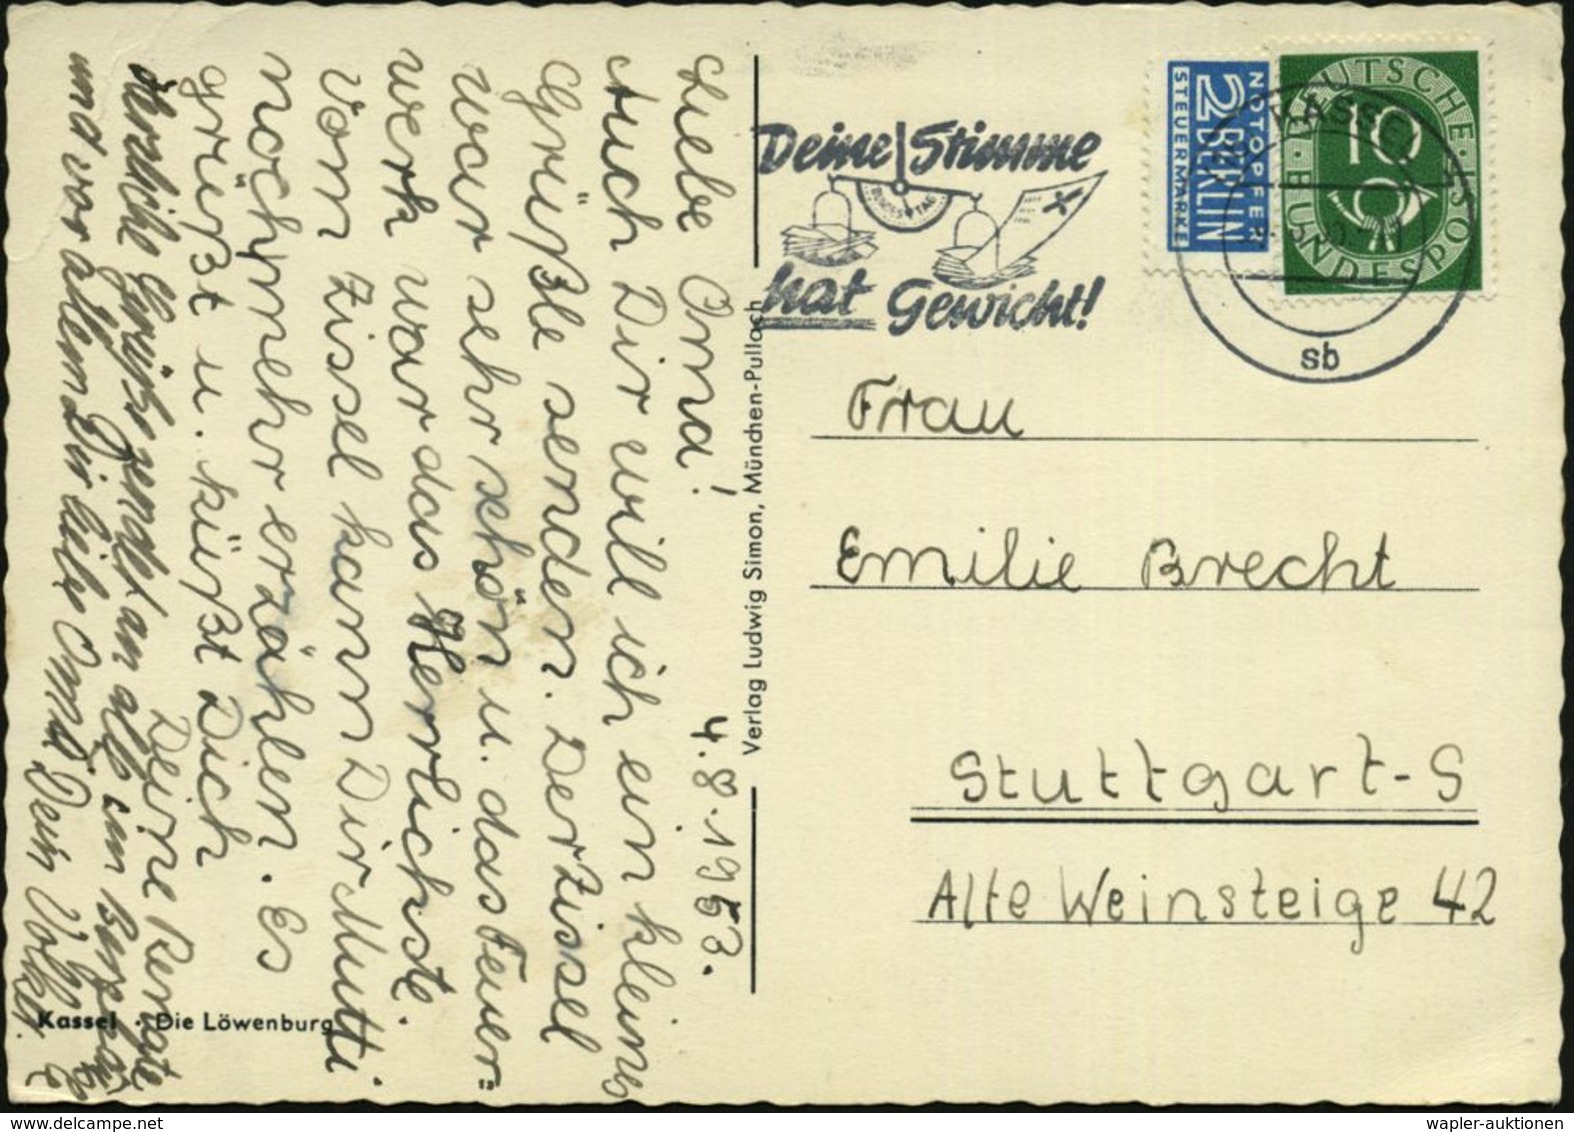 4. 8. 1953.
Liebe Oma!
Auch Dir will ich ein kleine
Grüßle senden. Der Zissel
war sehr schön u. das Feuer-
werk war das Herrlichste.
Vom Zissel kann Dir Mutti
noch mehr erzählen. Es
grüßt u. küßt Dich
Deine Renate
Herzliche Grüße sendet an alle im
und vor allem Dir liebe Oma Dein Volker.
Kassel · Die Löwenburg
Verlag Ludwig Simon, München-Pullach
Deine Stimme
BUNDESTAG
hat Gewicht!
NOTOPFER
2 BERLIN
STEUERMARKE
DEUTSCHE BUNDESPOST
10
KASSEL
sb
Frau
Emilie Brecht
Stuttgart-S
Alte Weinsteige 42
wapler-auktionen